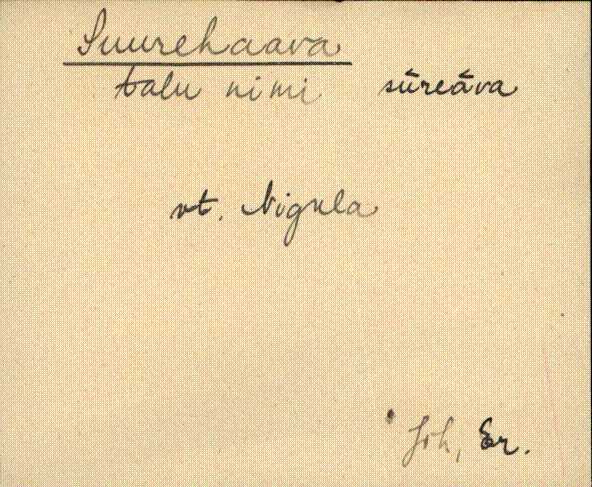 Suurehaava
talu nimi sūreāva
vt. Nigula
Joh, Er.